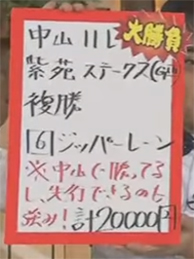 中山11R
大勝負
紫苑ステークス(GⅡ)
複勝
[6]ジッパーレーン
※中山で勝ってる
し、先行できるのも
強み!計20000円